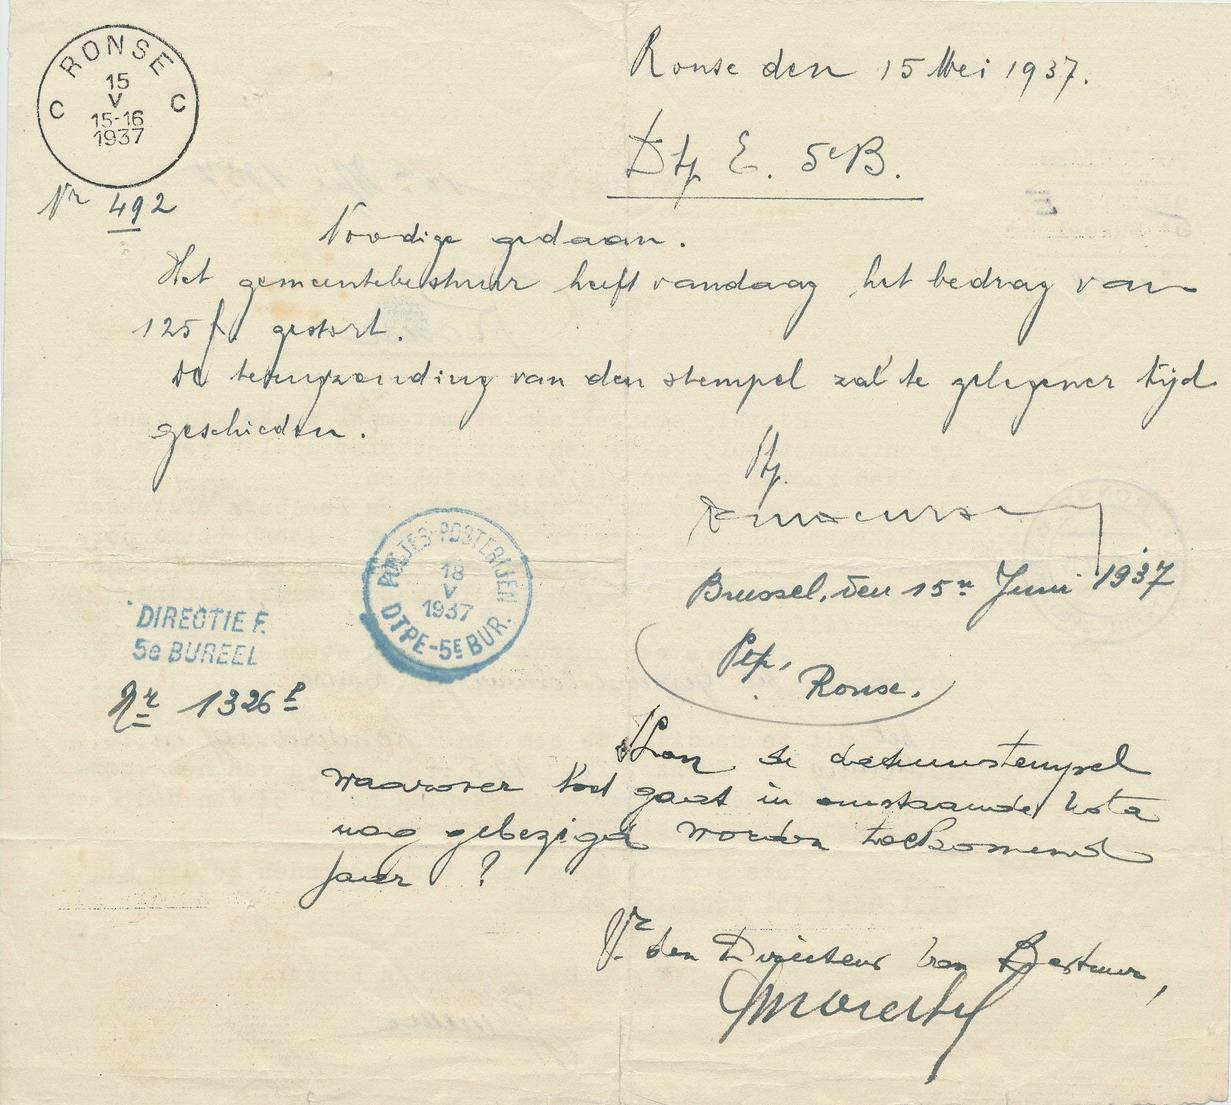 RONSE
C 15 C
V
15-16
1937
Nr 492
Ronse den 15 Mei 1937.
Dtp E. 5e B.
Noodige gedaan.
Het gemeentebestuur heeft vandaag het bedrag van
125 f. gestort.
De terugzending van den stempel zal te gelegener tijd
geschieden.
Ptp.
POSTES-POSTERIJEN
18
V
1937
DTPE-5E BUR.
DIRECTIE E.
5e BUREEL
Nr 1326
Brussel, den 15n Juni 1937
Ptp,
Ronse.
Kan de stempel
waarover het gaat in omstaande nota
nog gebezigd worden toekomend
jaar ?
Vr den Directeur van Bestuur,